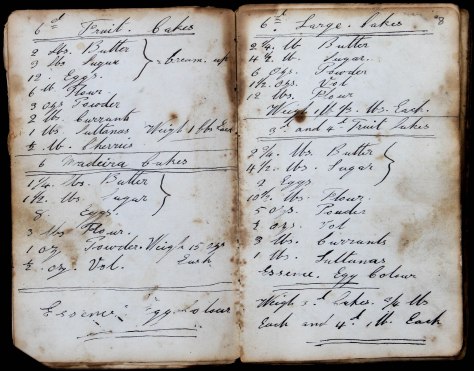 6d Fruit Cakes
2 lbs. Butter
3 lbs. Sugar
Cream up
12. Eggs.
6 lb Flour
3 ozs Powder
2 lb. Currants
1 lb. Sultanas Weigh 1 lbs Each
½ lb Cherries
6 Madeira Cakes
1¼ lbs. Butter
1½ lbs. Sugar
8 Eggs.
3 lbs Flour.
1 oz Powder. Weigh 15 ozs
½ oz. Vol. Each
Essence Egg Colour
8
6d Large Cakes
2¼ lb Butter
4½ lb Sugar.
6 ozs. Powder
1½ ozs. Vol
12 lbs. Flour
Weigh 1 lb Each.
3d and 4d Fruit Cakes
2¼ lbs. Butter
4½ lbs. Sugar
9 Eggs
10½ lbs. Flour.
5 ozs. Powder
ozs Vol
3 lbs. Currants
1 lb. Sultanas
Essence, Egg Colour
Weigh 3d Cakes. ¾ lbs
Each and 4d 1 lb. Each